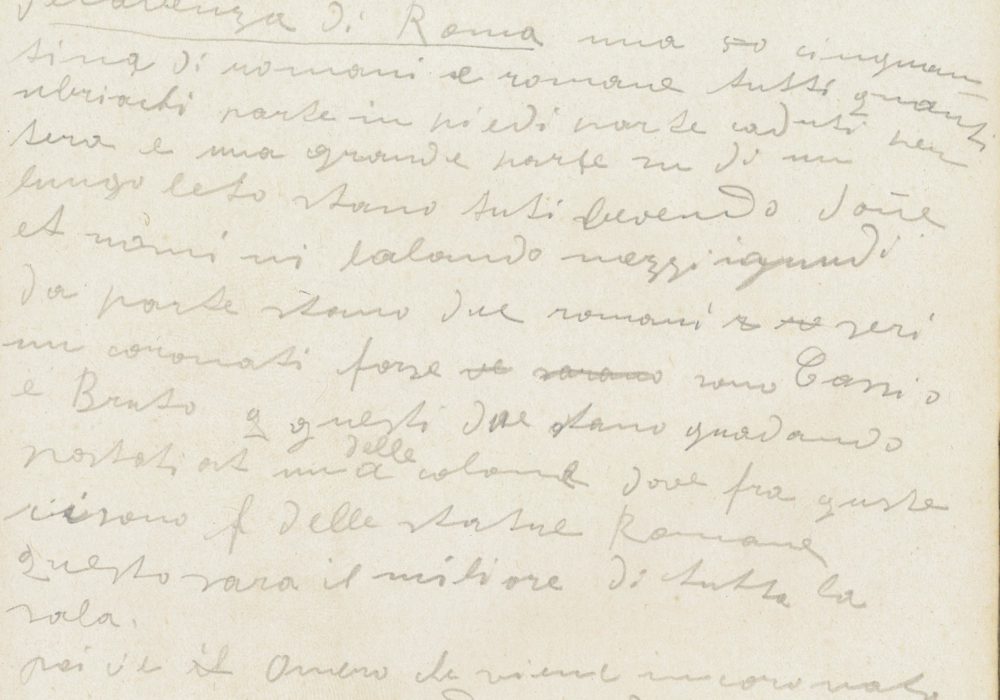 decadenza di Roma una 50 cinquan
tina di romani e romane tutti quanti
ubriachi parte in piedi parte caduti per
tera e una grande parte su di un
lungo leto stano tuti bevendo done
et uomi ni balando mezzi igniudi
da parte stano due romani seri
un coronati forse ve sarano sono Cassio
e Bruto q questi due stano guadando
postati at una delle colone dove fra queste
ci sono f delle statue Romane
questo sara il miliore di tutta la
sala.
poi ve il Omero che viene incoronato